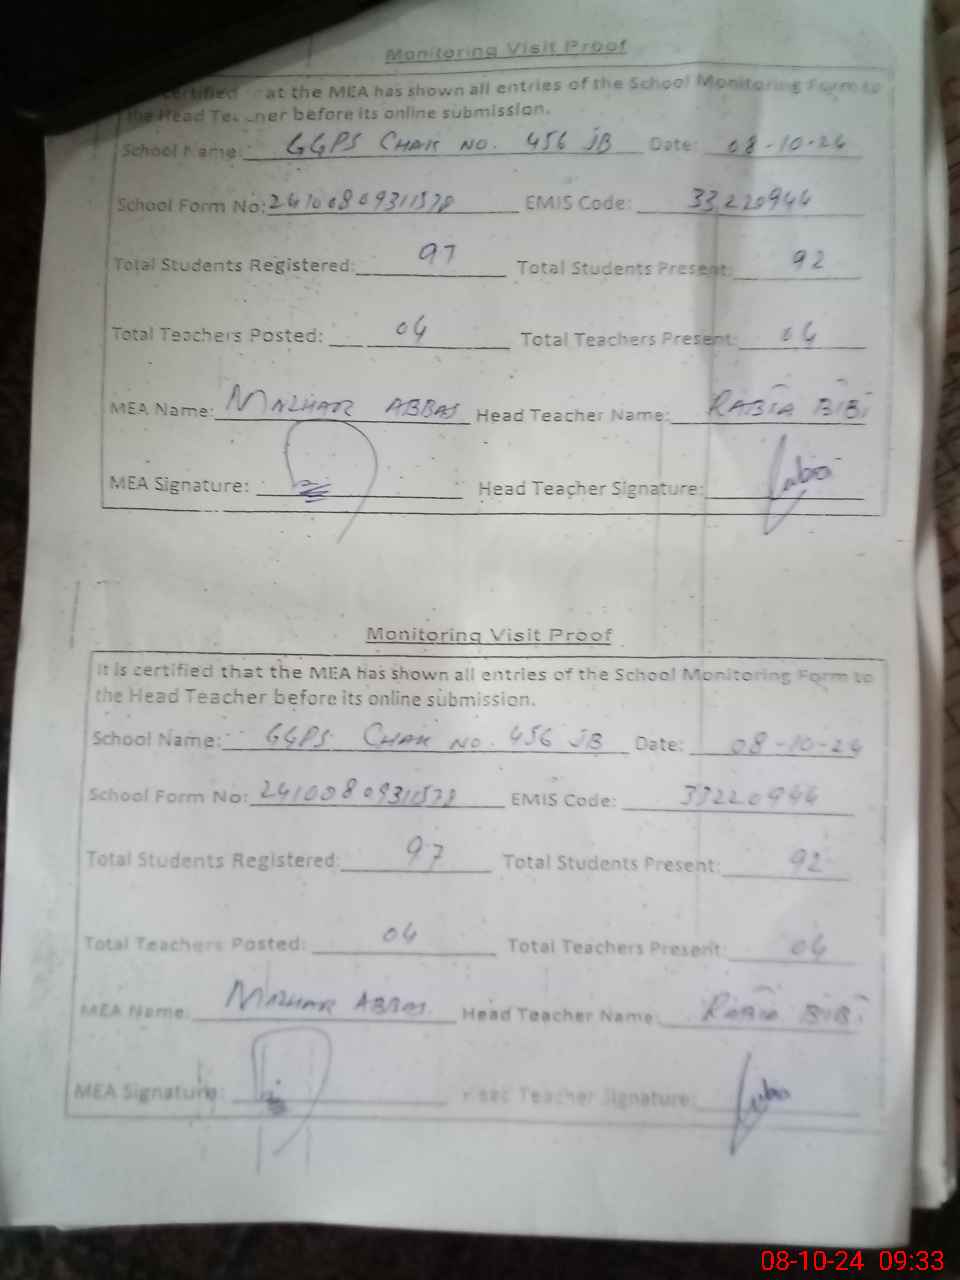 Monitoring Visit Proof
certified at the MEA has shown all entries of the School Monitoring Form to
the Head Teacher before its online submission.
School Name: GGPS CHAK NO. 456 JB Date: 08-10-24
School Form No: EMIS Code: 33220944
Total Students Registered: 97 Total Students Present: 92
Total Teachers Posted: 04 Total Teachers Present: 04
MEA Name: MAZHAR ABBAS Head Teacher Name: RABIA BIBI
MEA Signature: Head Teacher Signature:
Monitoring Visit Proof
It is certified that the MEA has shown all entries of the School Monitoring Form to
the Head Teacher before its online submission.
School Name: GGPS CHAK NO. 456 JB Date: 08-10-24
School Form No: EMIS Code: 33220944
Total Students Registered: 97 Total Students Present: 92
Total Teachers Posted: 04 Total Teachers Present: 04
MEA Name: MAZHAR ABBAS Head Teacher Name: RABIA BIBI
MEA Signature: Head Teacher Signature:
08-10-24 09:33